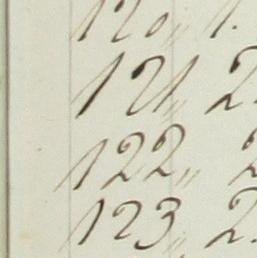 120,, 1.
121,, 2.
122,, 2
123,, 2.